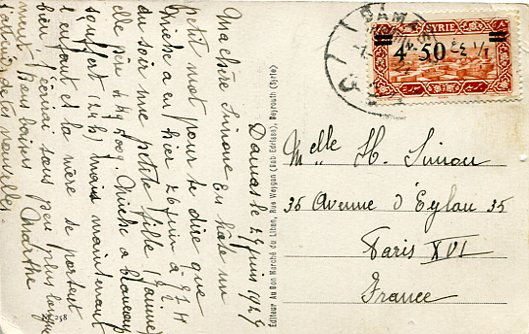 Damas le 27 juin 1929
Ma chère Simone En hâte un
petit mot pour te dire que
Mickse a eu hier 26 juin à 7 H ½
du soir une petite fille (Jaunie)
elle pèse 4 Kg 500, Mickse a beaucoup
souffert 24 h, mais maintenant
l'enfant et la mère se portent
bien. J'écrirai sous peu plus longue
ment. Bons baisers Marthe
J'attends de tes nouvelles.
Editeur Au Bon Marché du Liban, Rue Weygan (Jab Edrisse), Beyrouth (Syrie)
DAMAS
SYRIE
4 50
Melle H. Simon
35 Avenue d'Eylau 35
Paris XVI
France